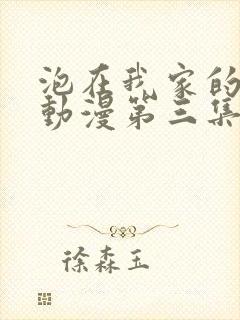 泡在我家的
動漫第三集
徐森玉